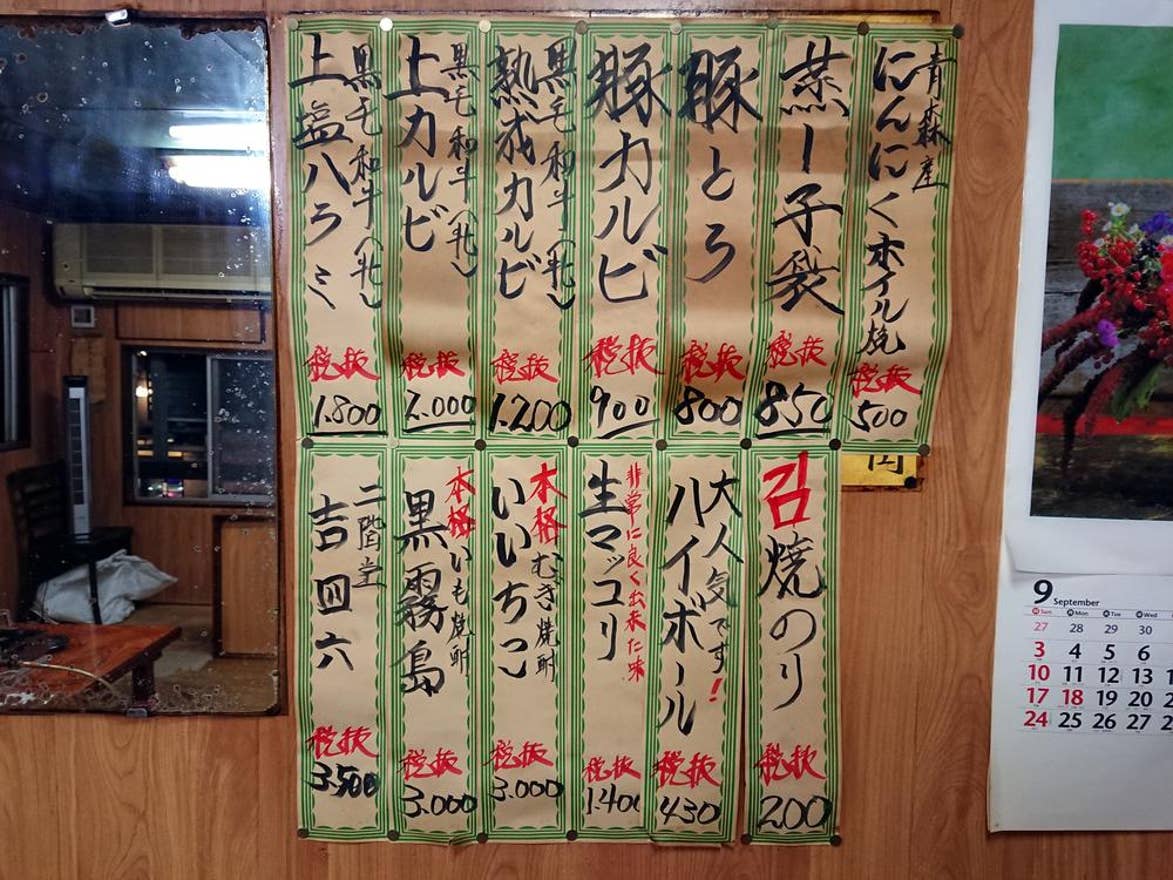 青森産
にんにくホイル焼
税抜
500
蒸し子袋
税抜
850
豚とろ
税抜
800
豚カルビ
税抜
900
黒毛和牛(牝)
熟成カルビ
税抜
1.200
黒毛和牛(牝)
上カルビ
税抜
2.000
黒毛和牛(牝)
上塩ハラミ
税抜
1.800
김
焼のり
税抜
200
大人気です!
ハイボール
税抜
430
非常に良く出来た味
生マッコリ
税抜
1.400
本格むぎ焼酎
いいちこ
税抜
3.000
本格いも焼酎
黒霧島
税抜
3.000
二階堂
吉四六
税抜
3.500
円
9 September
Sun Mon Tue Wed
27 28 29 30
3 4 5 6
10 11 12 13
17 18 19 20
24 25 26 27